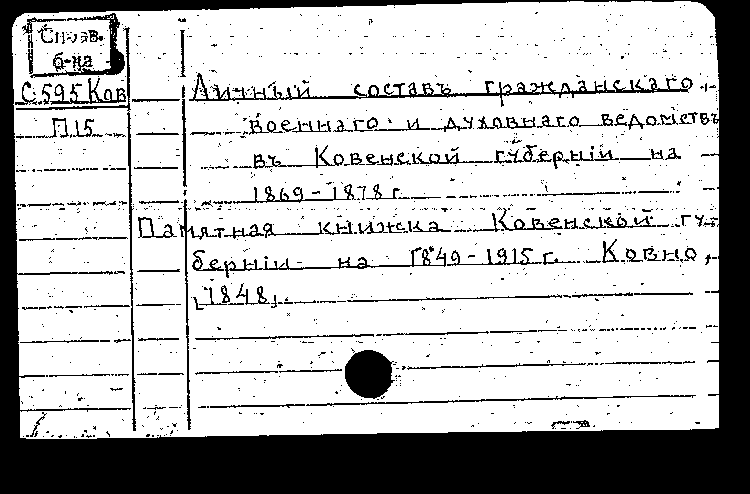 Справ.
б-ка
С.595 Ков
П15
Личный составъ гражданскаго,
военнаго и духовнаго ведомствъ
въ Ковенской губерніи на
1869-1878 г.
Памятная книжка Ковенской гу-
берніи на 1849-1915 г. Ковно,
1848,.